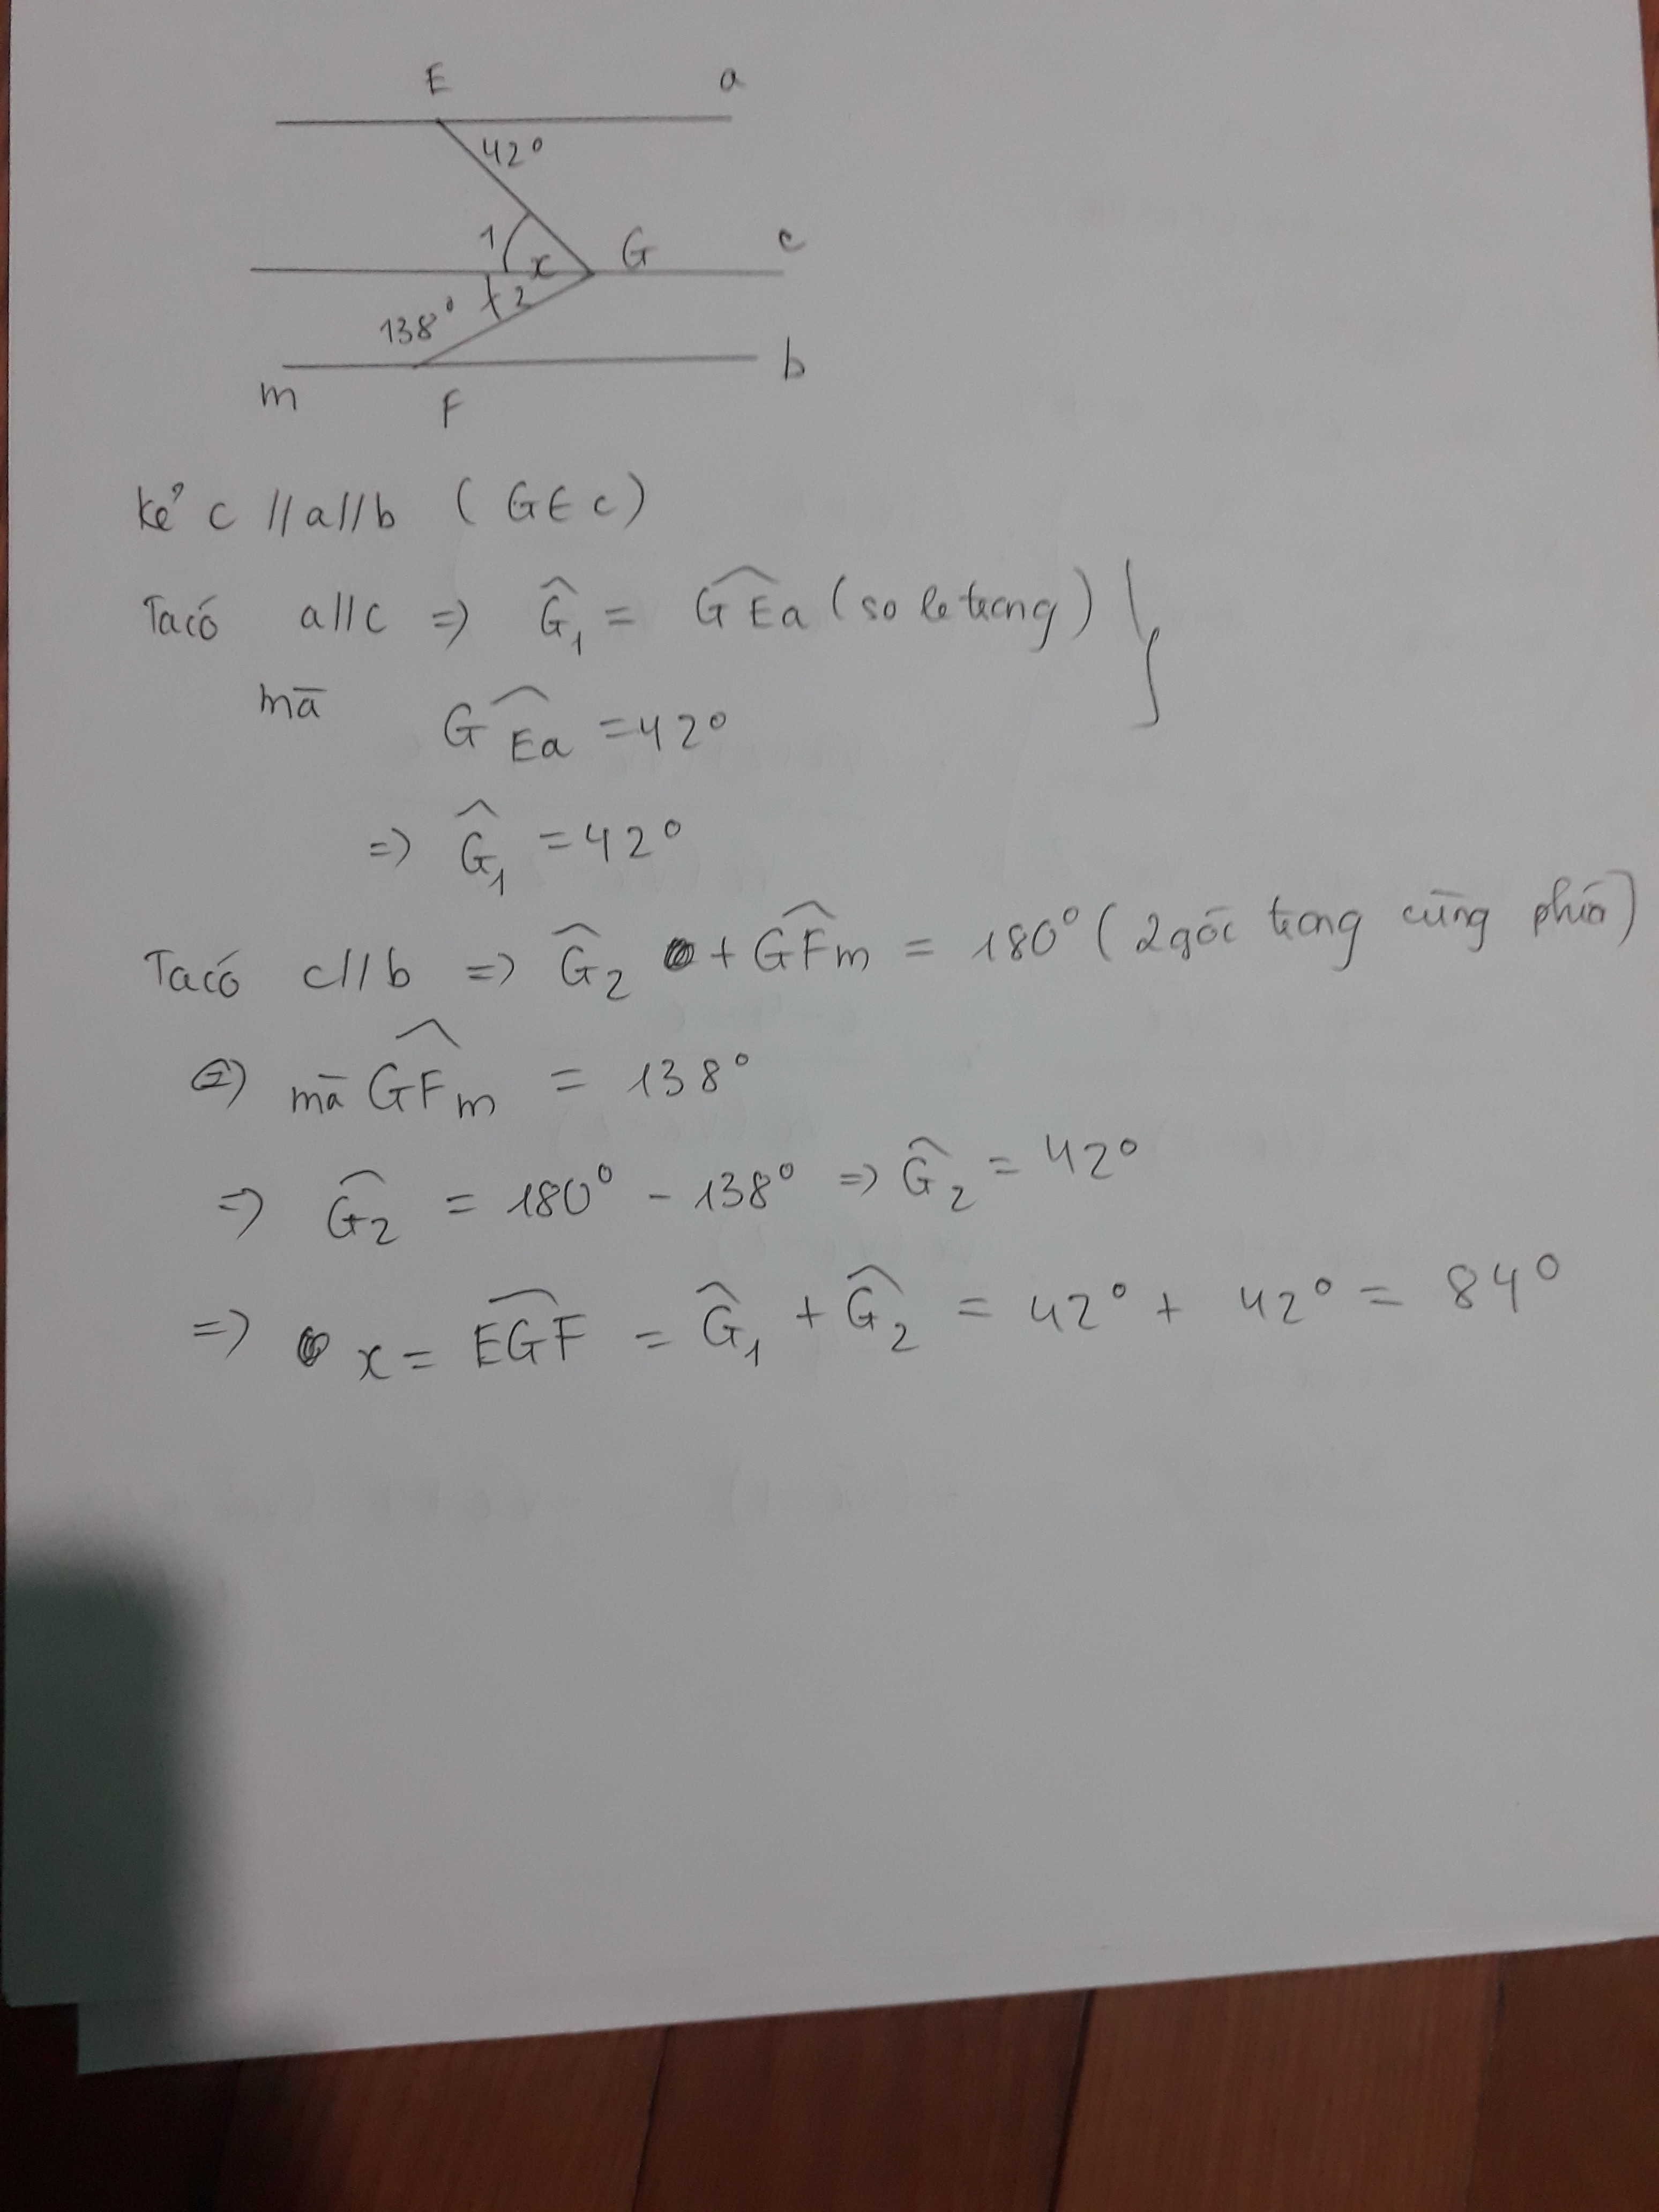 E a
42°
1 x G c
138° 2
m F b
kẻ c // a // b ( G ∈ c )
Ta có a // c => Ĝ₁ = GÊa (so le trong) }
mà GÊa = 42°
=> Ĝ₁ = 42°
Ta có c // b => Ĝ₂ + GF̂m = 180° ( 2 góc trong cùng phía)
mà GF̂m = 138°
=> Ĝ₂ = 180° - 138° => Ĝ₂ = 42°
=> x = EĜF = Ĝ₁ + Ĝ₂ = 42° + 42° = 84°